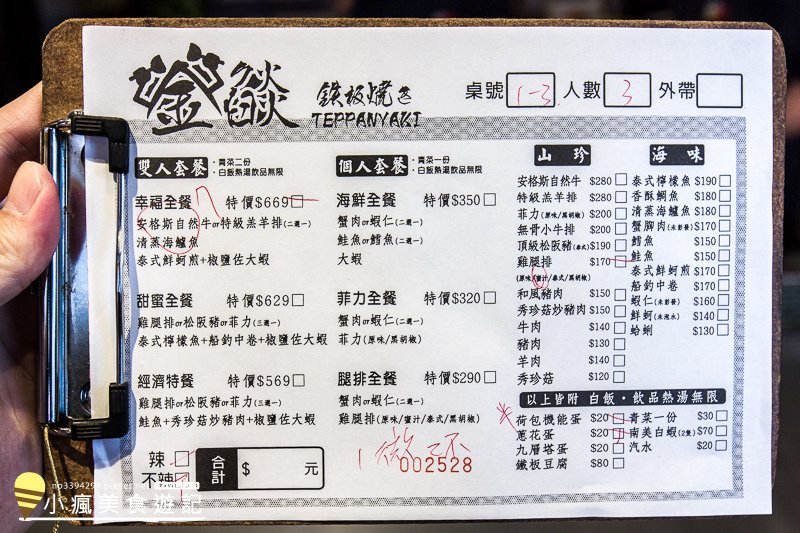 鐙燄 鉄板燒き
TEPPANYAKI
桌號 1-3 人數 3 外帶
雙人套餐 ·青菜二份
·白飯熱湯飲品無限
幸福全餐 特價$669
安格斯自然牛or特級羔羊排(二選一)
清蒸海鱸魚
泰式鮮蚵煎+椒鹽佐大蝦
甜蜜全餐 特價$629
雞腿排or松阪豬or菲力(三選一)
泰式檸檬魚+船釣中卷+椒鹽佐大蝦
經濟特餐 特價$569
雞腿排or松阪豬or菲力(三選一)
鮭魚+秀珍菇炒豬肉+椒鹽佐大蝦
辣
不辣
合計 $ 元
個人套餐 ·青菜一份
·白飯熱湯飲品無限
海鮮全餐 特價$350
蟹肉or蝦仁(二選一)
鮭魚or鱈魚(二選一)
大蝦
菲力全餐 特價$320
蟹肉or蝦仁(二選一)
菲力(原味/黑胡椒)
腿排全餐 特價$290
蟹肉or蝦仁(二選一)
雞腿排(原味/蜜汁/泰式/黑胡椒)
002528
山珍
安格斯自然牛 $280
特級羔羊排 $280
菲力(原味/黑胡椒) $200
無骨小牛排 $200
頂級松阪豬(泰式) $190
雞腿排 $170
(原味/蜜汁/泰式/黑胡椒)
和風豬肉 $150
秀珍菇炒豬肉 $150
牛肉 $140
豬肉 $130
羊肉 $140
秀珍菇 $120
海味
泰式檸檬魚 $190
香酥鯛魚 $180
清蒸海鱸魚 $180
蟹腳肉(未影響) $170
鱈魚 $150
鮭魚 $150
泰式鮮蚵煎 $170
船釣中卷 $170
蝦仁(未影響) $160
鮮蚵(未泡水) $140
蛤蜊 $130
以上皆附 白飯·飲品熱湯無限
荷包機能蛋 $20
蔥花蛋 $20
九層塔蛋 $20
鐵板豆腐 $80
青菜一份 $30
南美白蝦(2隻) $70
汽水 $20
小瘋美食遊記